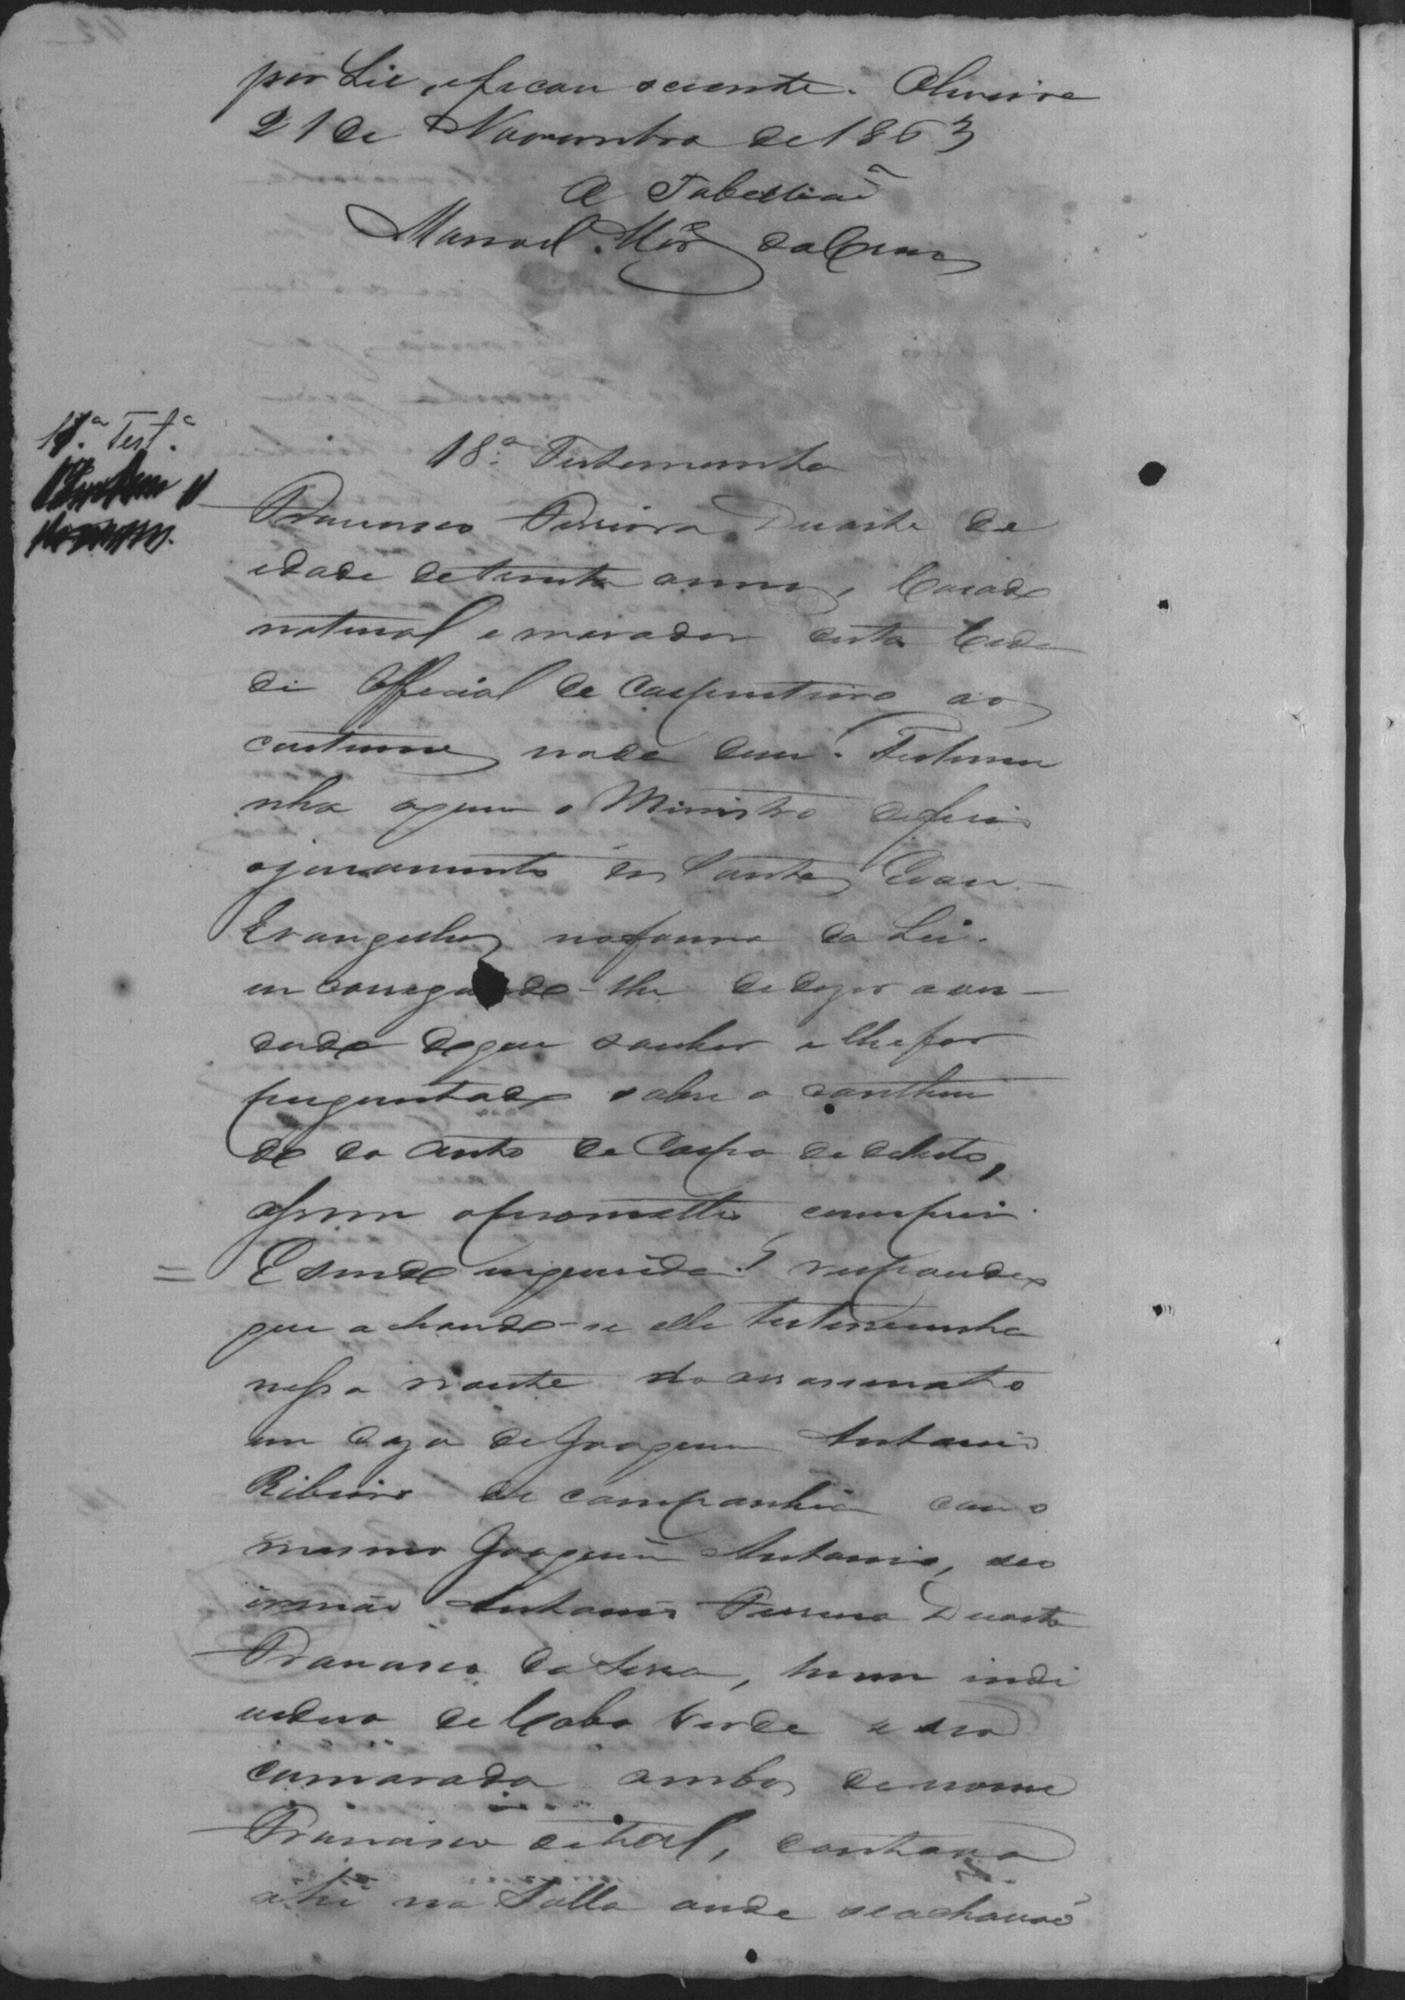 por Lei, e ficou sciente. Oliveira
21 de Novembro de 1863
O Tabelliaõ
Manoel da Cruz
11.ª Test.ª
18.ª Testemunha
Francisco Ferreira Duarte de
idade de trinta annos, Casado
natural e morador desta Cida
de Official de Carpinteiro aos
costumes nada disse. Testemu
nha aquem o Ministro deferio
o juramento dos Santos Evan
Evangelhos na forma da Lei.
en carregando-lhe de dizer a ver-
dade do que souber e lhe for
perguntado sobre o conthiu
do do auto de Corpo de delicto,
assim o prometteo cumprir.
E sendo inquirida? respondeo
que achando-se elle testemunha
nessa noute do assassinato
em caza de Joaquim Antonio
Ribeiro de companhia com o
mesmo Joaquim Antonio, seo
irmaõ Antonio Ferreira Duarte
Francisco da Silva, hum indi
viduo de Cabo Verde e seo
camarada ambos de nome
Francisco de tal, contava
ahi na Salla onde se achavaõ